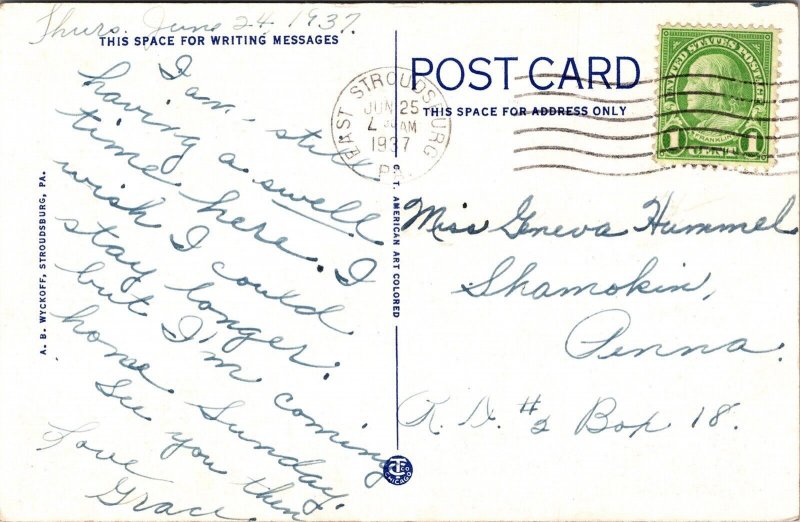 Thurs. June 24, 1937.
THIS SPACE FOR WRITING MESSAGES
I am still
having a swell
time here. I
wish I could
stay longer.
but I'm coming
home Sunday.
See you then
Love
Grace.
A. B. WYCKOFF, STROUDSBURG, PA.
C. T. AMERICAN ART COLORED
CHICAGO
POST CARD
THIS SPACE FOR ADDRESS ONLY
EAST STROUDSBURG
JUN 25
AM
1937
PA.
UNITED STATES POSTAGE
FRANKLIN
1 1
Miss Geneva Hummel
Shamokin,
Penna.
R. D. #2 Box 18.